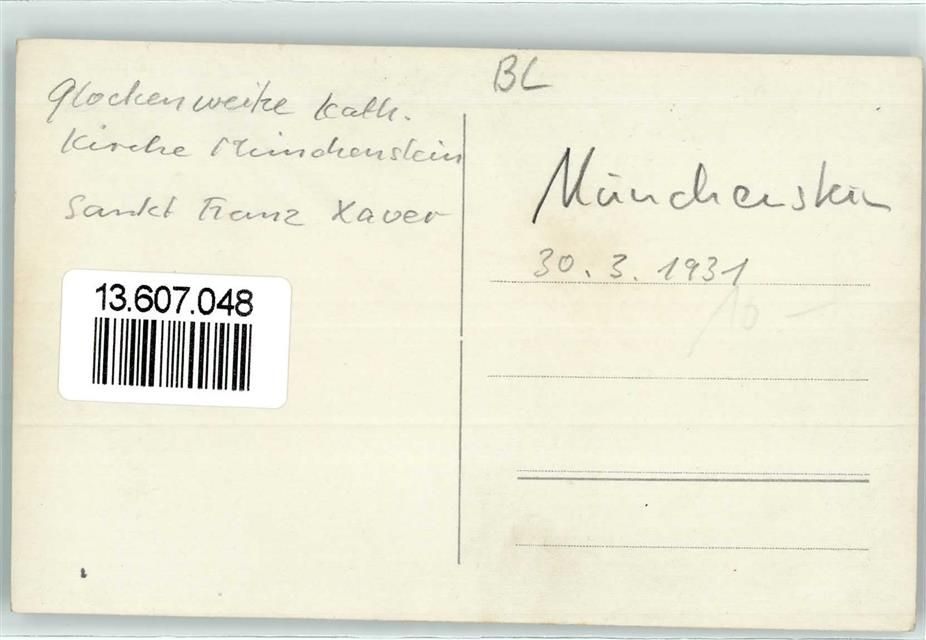 Glockenweihe Kath.
Kirche Münchenstein
Sankt Franz Xaver
13.607.048
BL
Münchenstein
30.3.1931
10 –